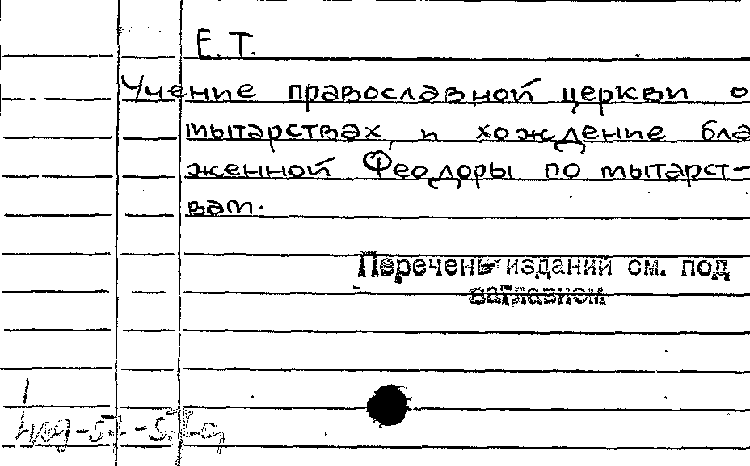 Е. Т.
Учение православной церкви о
мытарствах и хождение бла
женной Феодоры по мытарст-
вам.
Перечень изданий см. под
заглавием